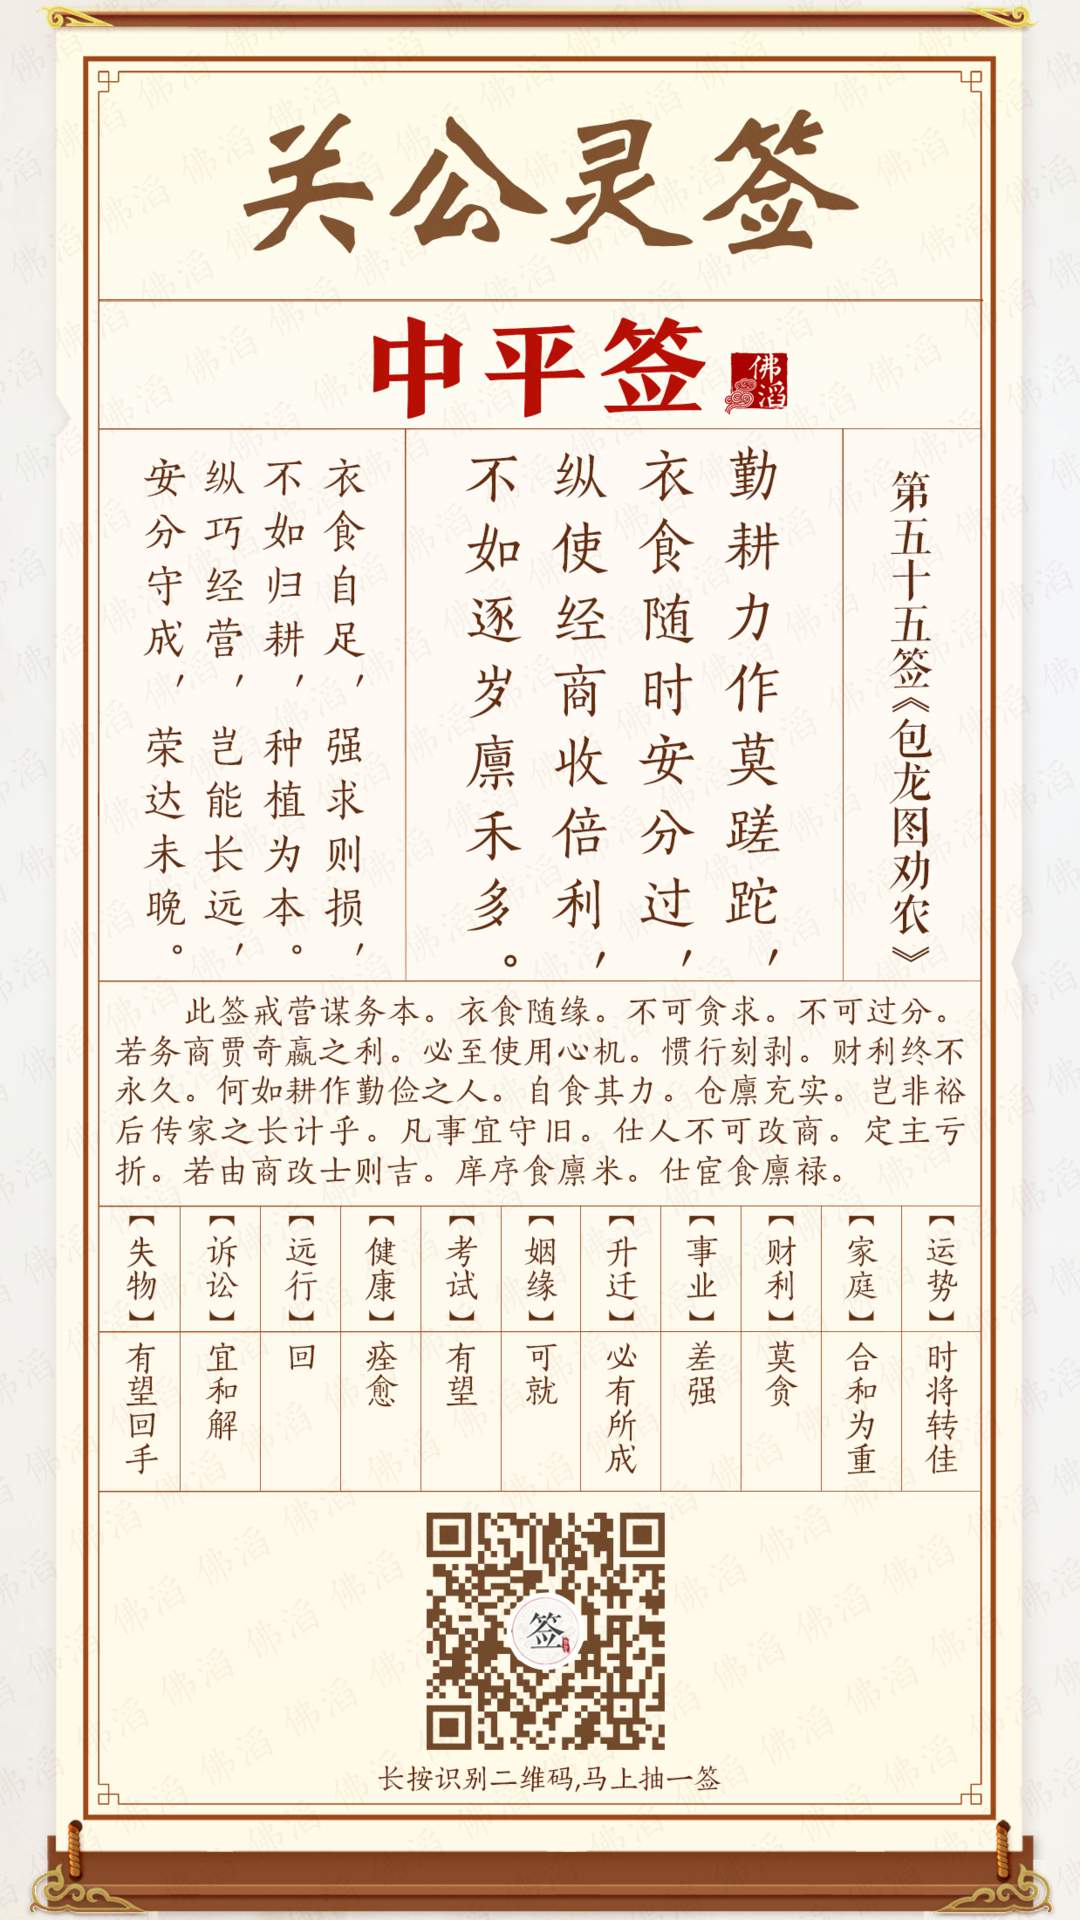 关公灵签
中平签
佛滔
第五十五签《包龙图劝农》
勤耕力作莫蹉跎，
衣食随时安分过，
纵使经商收倍利，
不如逐岁廪禾多。
衣食自足，强求则损，
不如归耕，种植为本。
纵巧经营，岂能长远，
安分守成，荣达未晚。
此签戒营谋务本。衣食随缘。不可贪求。不可过分。
若务商贾奇嬴之利。必至使用心机。惯行刻剥。财利终不
永久。何如耕作勤俭之人。自食其力。仓廪充实。岂非裕
后传家之长计乎。凡事宜守旧。仕人不可改商。定主亏
折。若由商改士则吉。庠序食廪米。仕宦食廪禄。
【运势】时将转佳
【家庭】合和为重
【财利】莫贪
【事业】差强
【升迁】必有所成
【姻缘】可就
【考试】有望
【健康】痊愈
【远行】回
【诉讼】宜和解
【失物】有望回手
签
长按识别二维码,马上抽一签